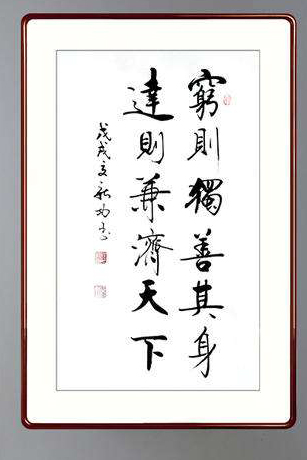 窮則獨善其身
達則兼濟天下
戊戌